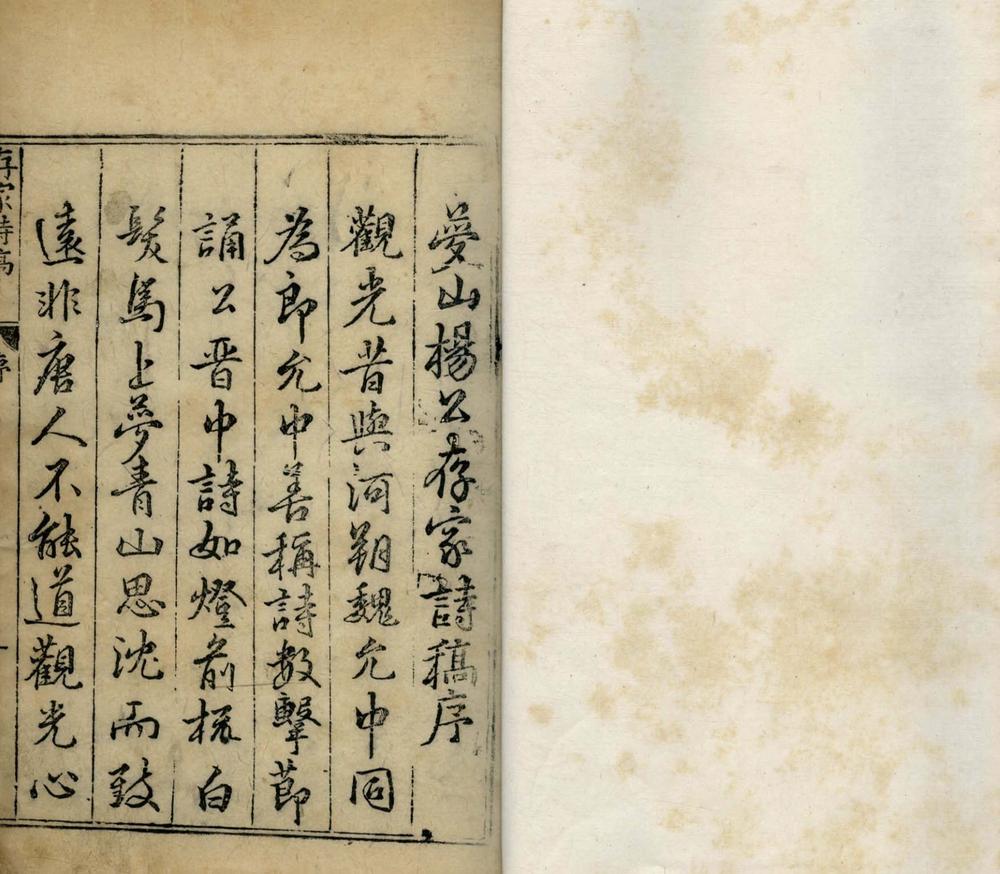 愛山楊公存家詩稿序
觀光昔與河朔魏允中同
為郎允中善稱詩數擊節
誦公晋中詩如燈前振白
髮馬上夢青山思沈而致
遠非唐人不能道觀光心
存家詩稿 序 一